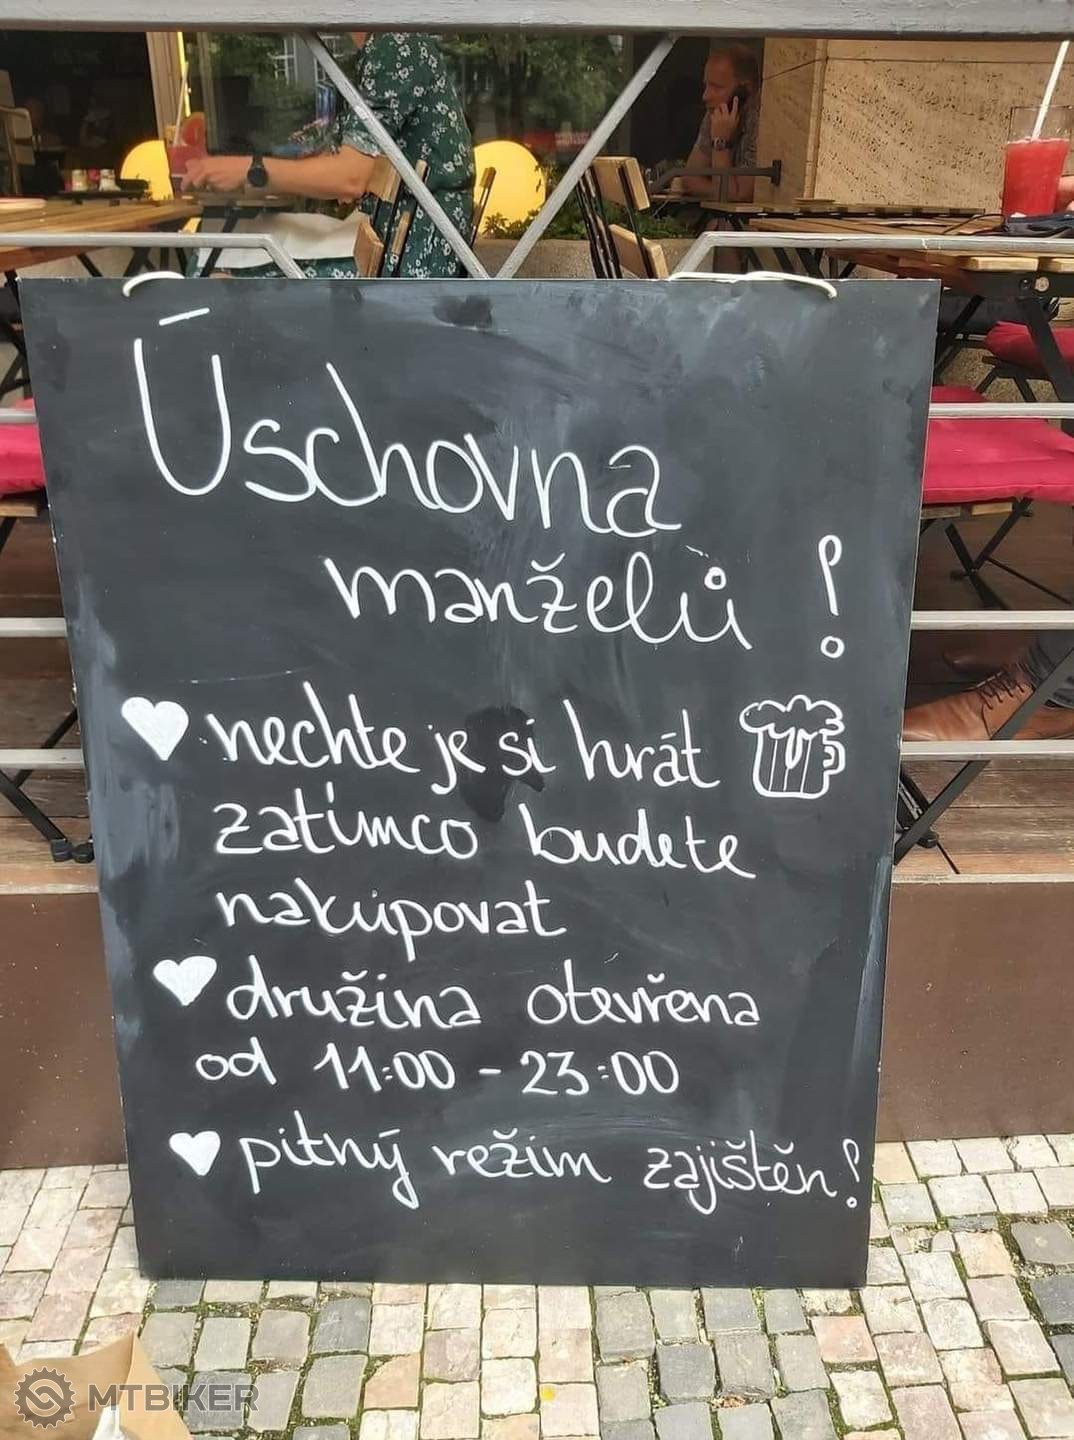 Úschovna
manželů !
nechte je si hrát
zatímco budete
nakupovat
družina otevřena
od 11:00 - 23:00
pitný režim zajištěn!
MTBIKER